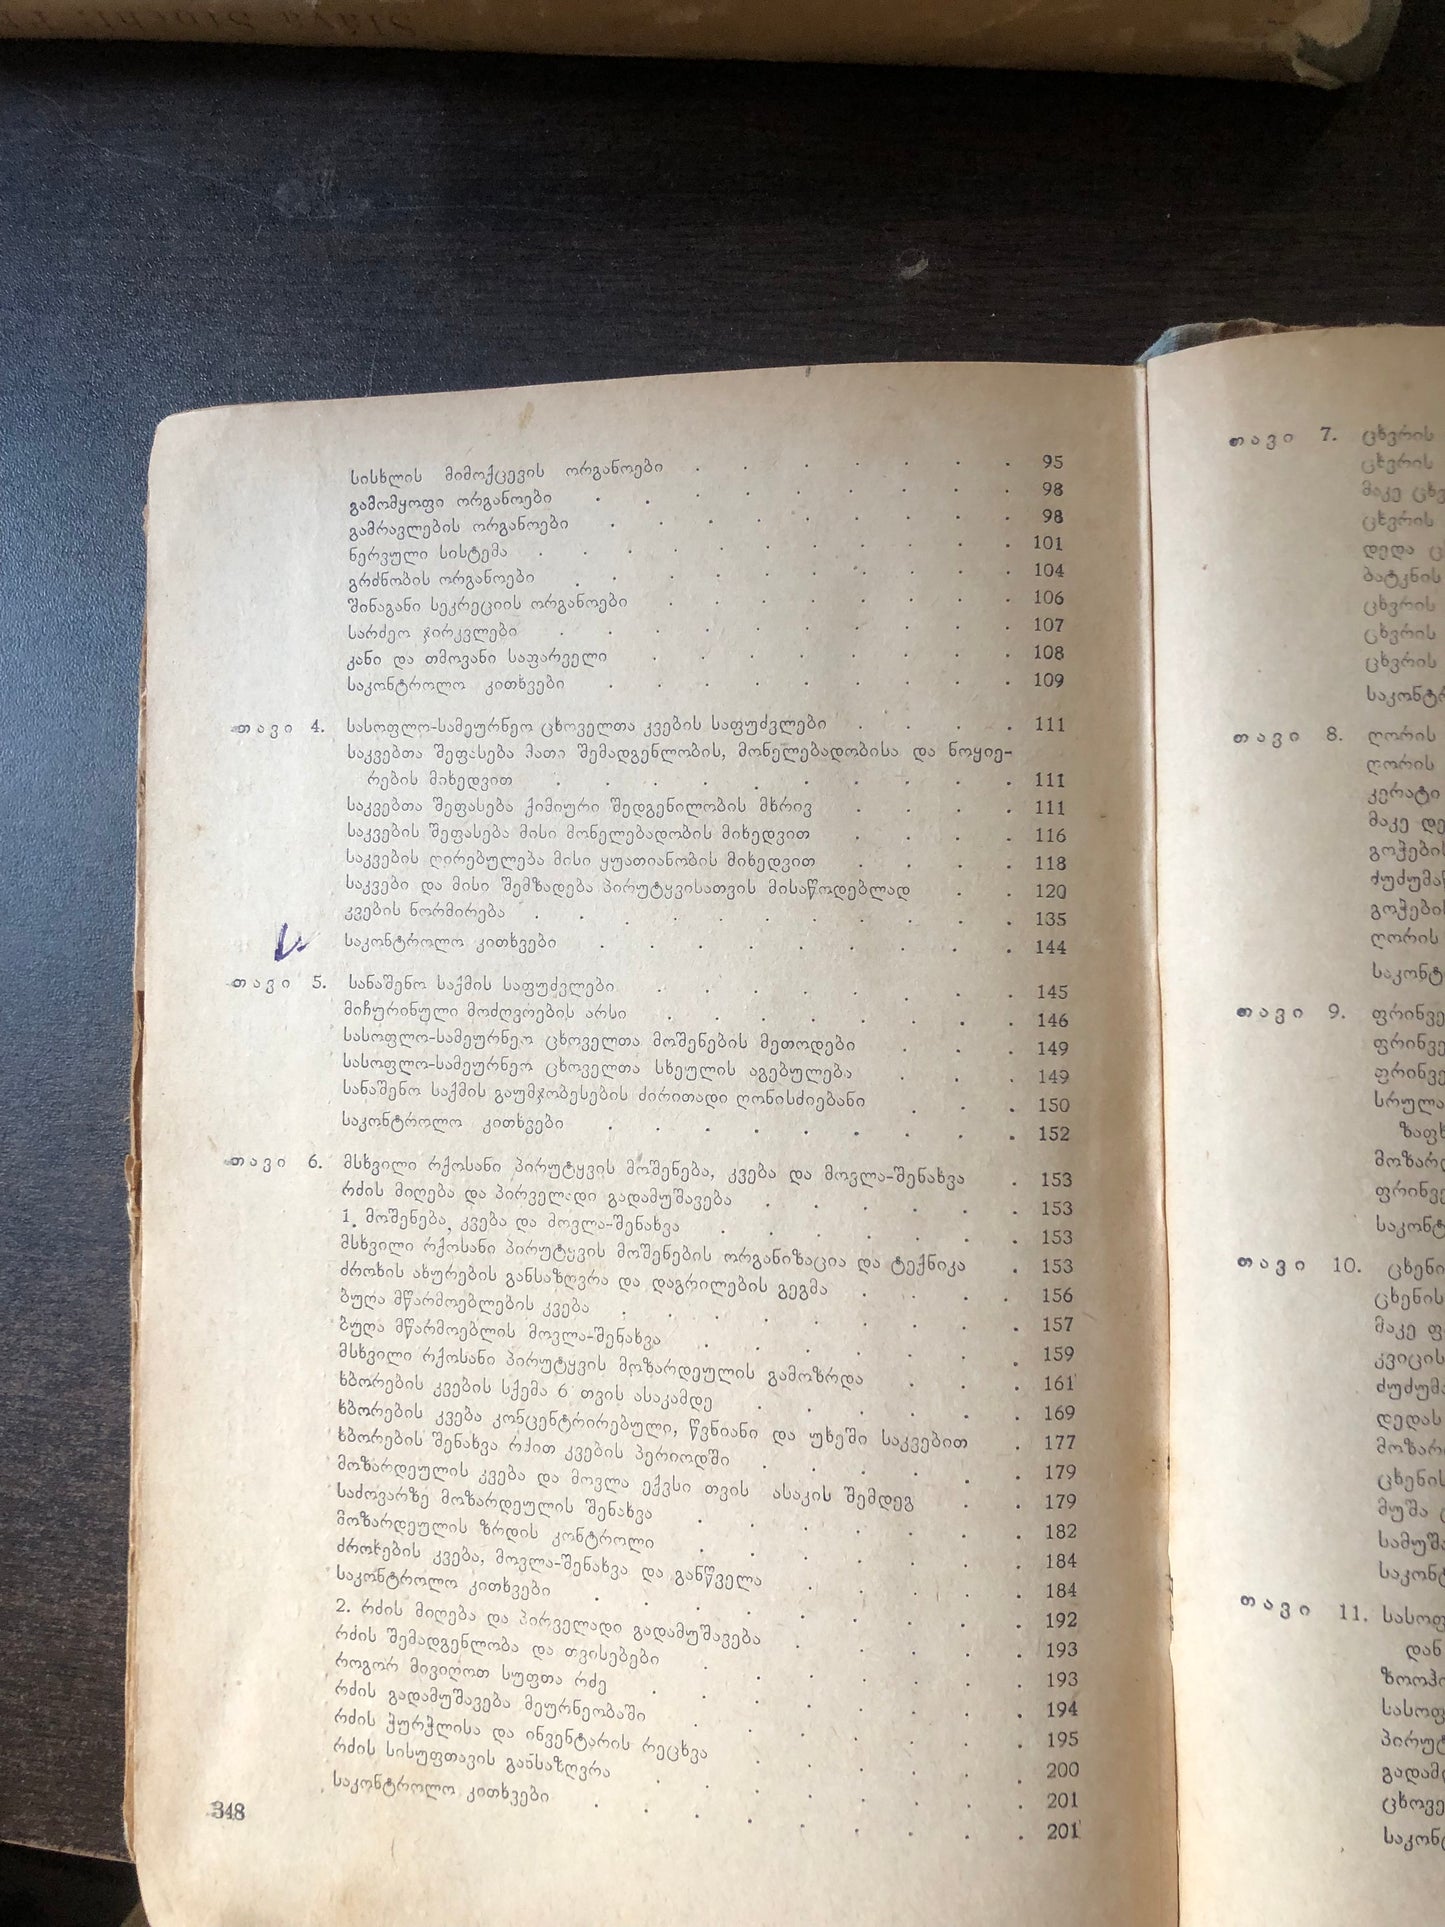 სისხლის მიმოქცევის ორგანოები . . . . . . . 95
გამომყოფი ორგანოები . . . . . . . . . 98
გამრავლების ორგანოები . . . . . . . . . 98
ნერვული სისტემა . . . . . . . . . . 101
გრძნობის ორგანოები . . . . . . . . . 104
შინაგანი სეკრეციის ორგანოები . . . . . . . . 106
სარძეო ჯირკვლები . . . . . . . . . . 107
კანი და თმოვანი საფარველი . . . . . . . . 108
საკონტროლო კითხვები . . . . . . . . . 109
თავი 4. სასოფლო-სამეურნეო ცხოველთა კვების საფუძვლები . . . . 111
საკვებთა შეფასება მათი შემადგენლობის, მონელებადობისა და ნოყიე-
რების მიხედვით . . . . . . . . . . 111
საკვებთა შეფასება ქიმიური შედგენილობის მხრივ . . . . 111
საკვების შეფასება მისი მონელებადობის მიხედვით . . . . 116
საკვების ღირებულება მისი ყუათიანობის მიხედვით . . . . 118
საკვები და მისი შემზადება პირუტყვისათვის მისაწოდებლად . . 120
კვების ნორმირება . . . . . . . . . . 135
საკონტროლო კითხვები . . . . . . . . . 144
თავი 5. სანაშენო საქმის საფუძვლები . . . . . . . . 145
მიჩურინული მოძღვრების არსი . . . . . . . . 146
სასოფლო-სამეურნეო ცხოველთა მოშენების მეთოდები . . . 149
სასოფლო-სამეურნეო ცხოველთა სხეულის აგებულება . . . 149
სანაშენო საქმის გაუმჯობესების ძირითადი ღონისძიებანი . . . 150
საკონტროლო კითხვები . . . . . . . . . 152
თავი 6. მსხვილი რქოსანი პირუტყვის მოშენება, კვება და მოვლა-შენახვა . 153
რძის მიღება და პირველადი გადამუშავება . . . . . . 153
1. მოშენება, კვება და მოვლა-შენახვა . . . . . . . 153
მსხვილი რქოსანი პირუტყვის მოშენების ორგანიზაცია და ტექნიკა . 153
ძროხის ახურების განსაზღვრა და დაგრილების გეგმა . . . . 156
ბუღა მწარმოებლების კვება . . . . . . . . . 157
ბუღა მწარმოებლის მოვლა-შენახვა . . . . . . . 159
მსხვილი რქოსანი პირუტყვის მოზარდეულის გამოზრდა . . . 161
ხბორების კვების სქემა 6 თვის ასაკამდე . . . . . . 169
ხბორების კვება კონცენტრირებული, წვნიანი და უხეში საკვებით . 177
ხბორების შენახვა რძით კვების პერიოდში . . . . . . 179
მოზარდეულის კვება და მოვლა ექვსი თვის ასაკის შემდეგ . . 179
საძოვარზე მოზარდეულის შენახვა . . . . . . . 182
მოზარდეულის ზრდის კონტროლი . . . . . . . 184
ძროხების კვება, მოვლა-შენახვა და განწველა . . . . . 184
საკონტროლო კითხვები . . . . . . . . . 192
2. რძის მიღება და პირველადი გადამუშავება . . . . . 193
რძის შემადგენლობა და თვისებები . . . . . . . 193
როგორ მივიღოთ სუფთა რძე . . . . . . . . 194
რძის გადამუშავება მეურნეობაში . . . . . . . 195
რძის ჭურჭლისა და ინვენტარის რეცხვა . . . . . . 200
რძის სისუფთავის განსაზღვრა . . . . . . . . 201
საკონტროლო კითხვები . . . . . . . . . 201
348
თავი 7. ცხვრის
ცხვრის
მაკე
ცხვრის
დედა
ბატკნის
ცხვრის
ცხვრის
ცხვრის
თავი 8. ღორის
ღორის
კერატი
მაკე
ღორის
თავი 9.
მოზარდ
თავი 10. ცხენი
ცხენის
მაკე
კვიცის
დედას
ცხენის
მუშა
თავი 11.
დან